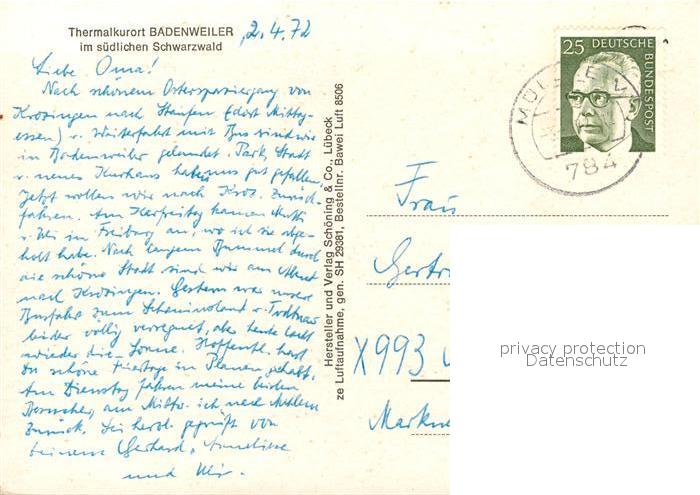 Thermalkurort BADENWEILER
im südlichen Schwarzwald
2.4.72
Liebe Oma!
Nach schönem Osterspaziergang von
Krozingen nach Staufen (dort Mittag-
essen) u. Weiterfahrt mit Bus sind wir
in Badenweiler gelandet. Park, Stadt
u. neues Kurhaus haben uns gut gefallen.
Jetzt wollen wir nach Kroz. zurück-
fahren. Am Karfreitag kamen Mutti
u. Uli in Freiburg an, wo ich sie abge-
holt habe. Nach langem Bummel durch
die schöne Stadt sind wir am Abend
nach Krozingen. Gestern war unsere
Busfahrt zum Schauinsland u. Todtnau
leider völlig verregnet, aber heute lacht
wieder die Sonne. Hoffentl. hast
Du schöne Feiertage in Plauen gehabt.
Am Dienstag fahren meine beiden
Besucher, am Mittw. ich nach
zurück. Sei herzl. gegrüßt von
Gerhard, Anneliese
und Uli.
Hersteller und Verlag Schöning & Co., Lübeck
ze Luftaufnahme, gen. SH 29381, Bestellnr. Bawei Luft 8506
25 DEUTSCHE
BUNDESPOST
784
Frau
Gertr
X993
Markn
privacy protection
Datenschutz